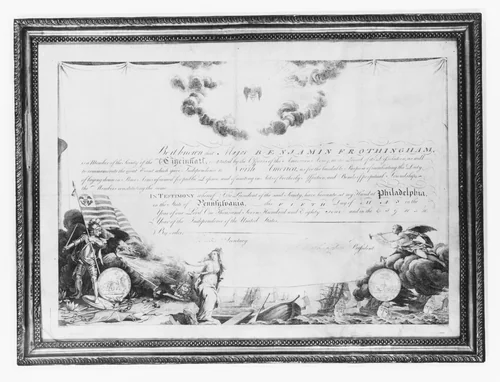 Be it known that Major BENJAMIN FROTHINGHAM,
is a Member of the Society of the Cincinnati; instituted by the Officers of the American Army, at the Period of its Dissolution, as well
to commemorate the great Event which gave Independence to North America, as for the laudable Purpose of inculcating the Duty
of laying down in Peace Arms assumed for public Defence, and of uniting in Acts of brotherly Affection, and Bonds of perpetual Friendship,
the Members constituting the same.
IN TESTIMONY whereof I, the President of the said Society, have hereunto set my Hand at Philadelphia
in the State of Pennsylvania this Day of in the
Year of our Lord One Thousand Seven Hundred and Eighty and in the
Year of the Independence of the United States.
By order,
Secretary.
President.